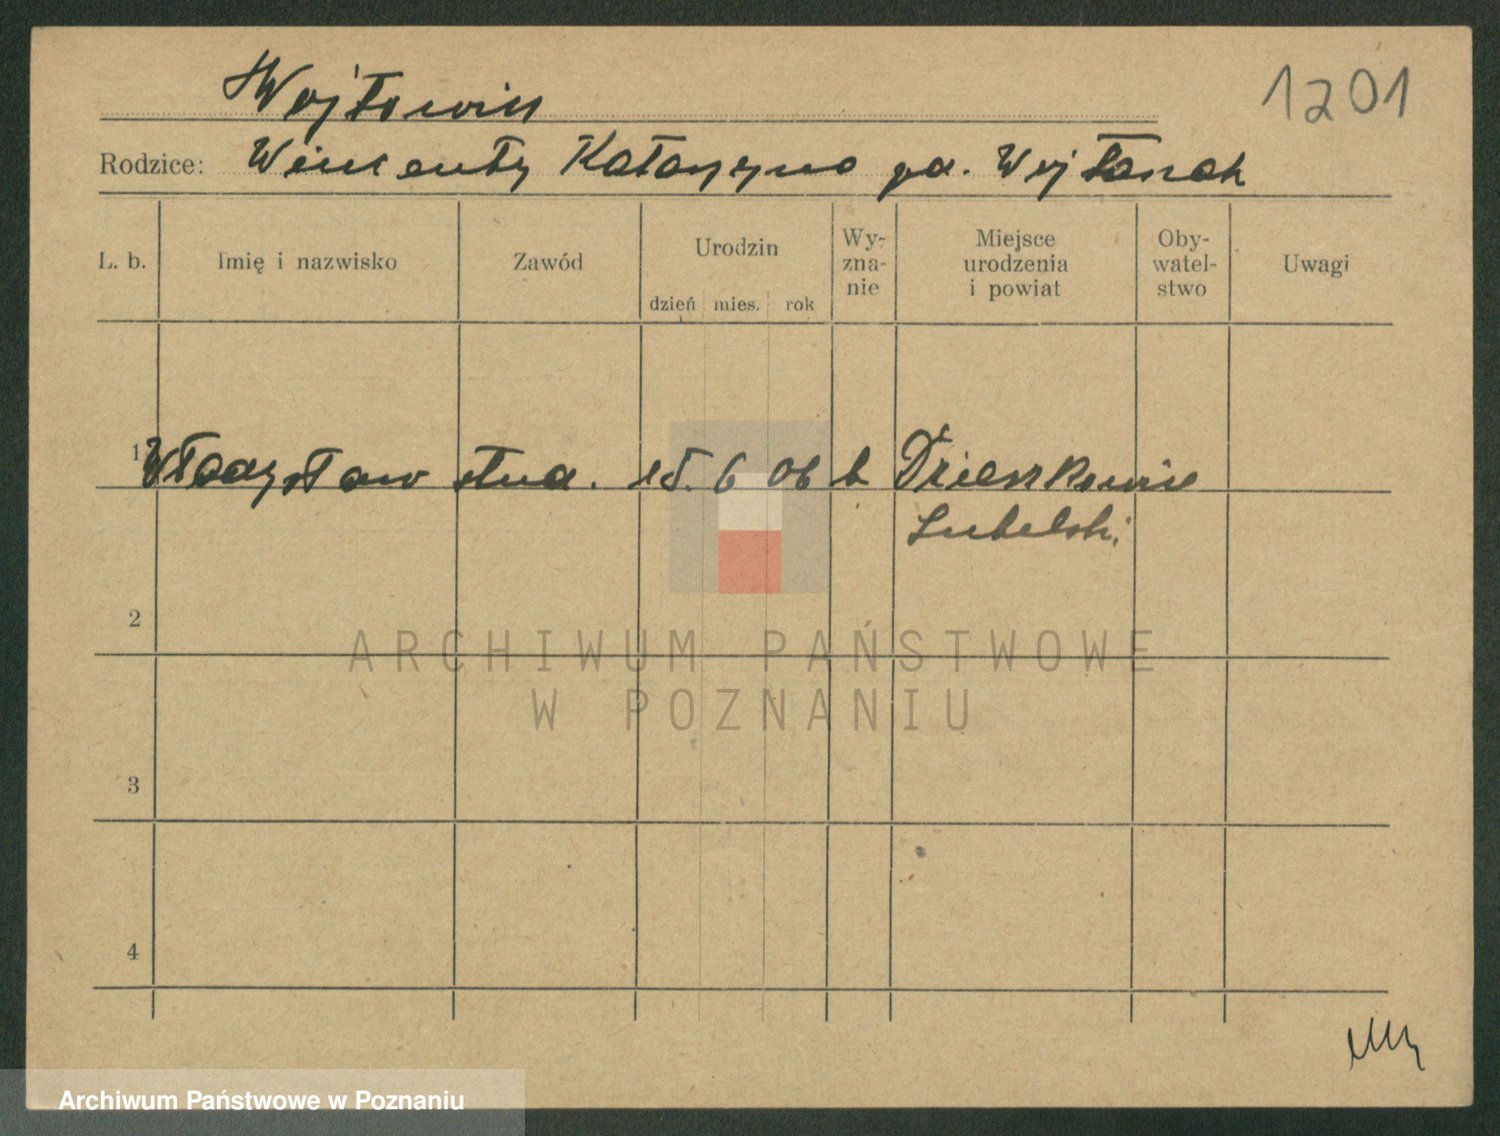 1201
Wojtowicz
Rodzice: Wincenty Katarzyna
L. b. Imię i nazwisko Zawód Urodzin dzień mies. rok Wy-zna-nie Miejsce urodzenia i powiat Oby-watel-stwo Uwagi
1 Władysław stud. 15. 6 06
Lubelski
2
ARCHIWUM PAŃSTWOWE
W POZNANIU
3
4
Archiwum Państwowe w Poznaniu